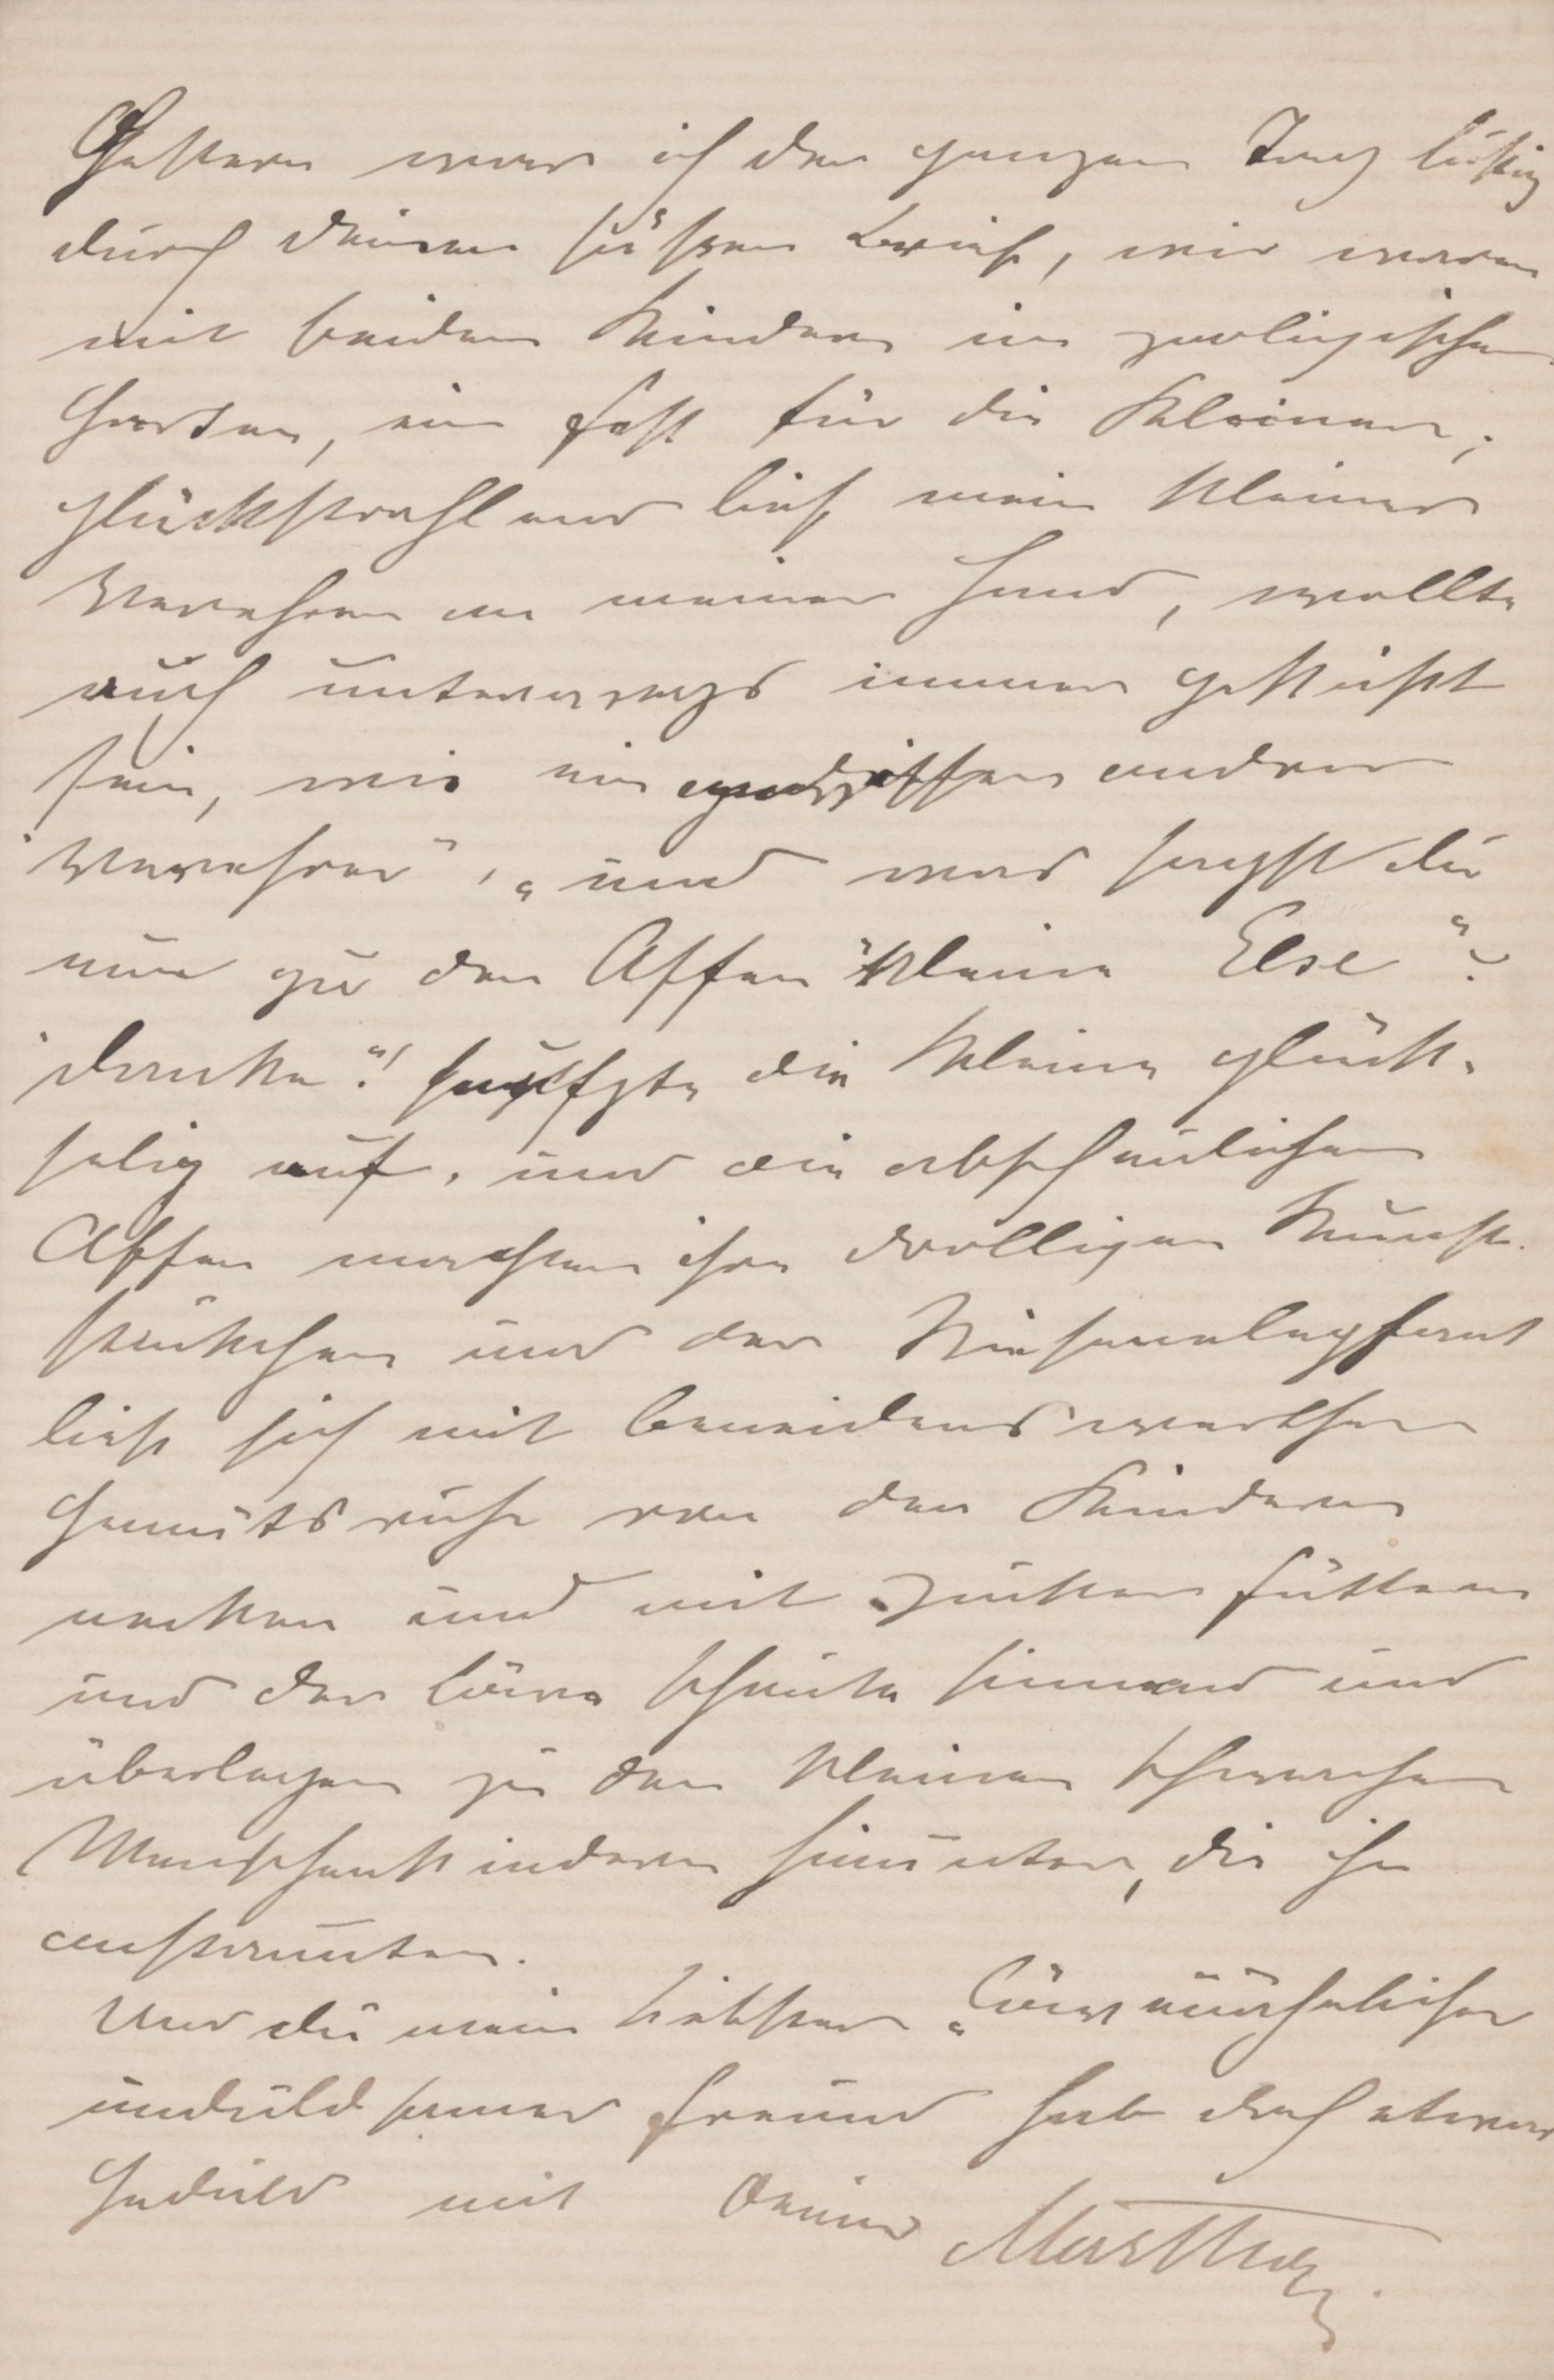 Gestern war ich den ganzen Tag lustig
durch deinen süßen Brief, wir waren
mit beiden Kindern im zoologischen
Garten, ein Fest für die Kleinen;
glückstrahlend lief mein kleiner
Verehrer an meiner Hand, wollte
auch unterwegs immer geküßt
sein, wie ein andrer
"Verehrer", „und was sagst du
nun zu den Affen "kleine Else"?
"danke"! seufzte die Kleine glück-
selig auf, und die abscheulichen
Affen machten ihre drolligen Kunst-
stückchen und der Riesenelephant
ließ sich mit beneidenswerther
Gemütsruhe von den Kindern
necken und mit Zucker füttern
und der Löwe schaute hinaus und
überlegen zu den kleinen schwachen
Menschenkindern hinunter, die ihn
anstaunten.
Und du mein liebster „
unduldsamer Freund hab doch etwas
Geduld mit Deiner Martha.